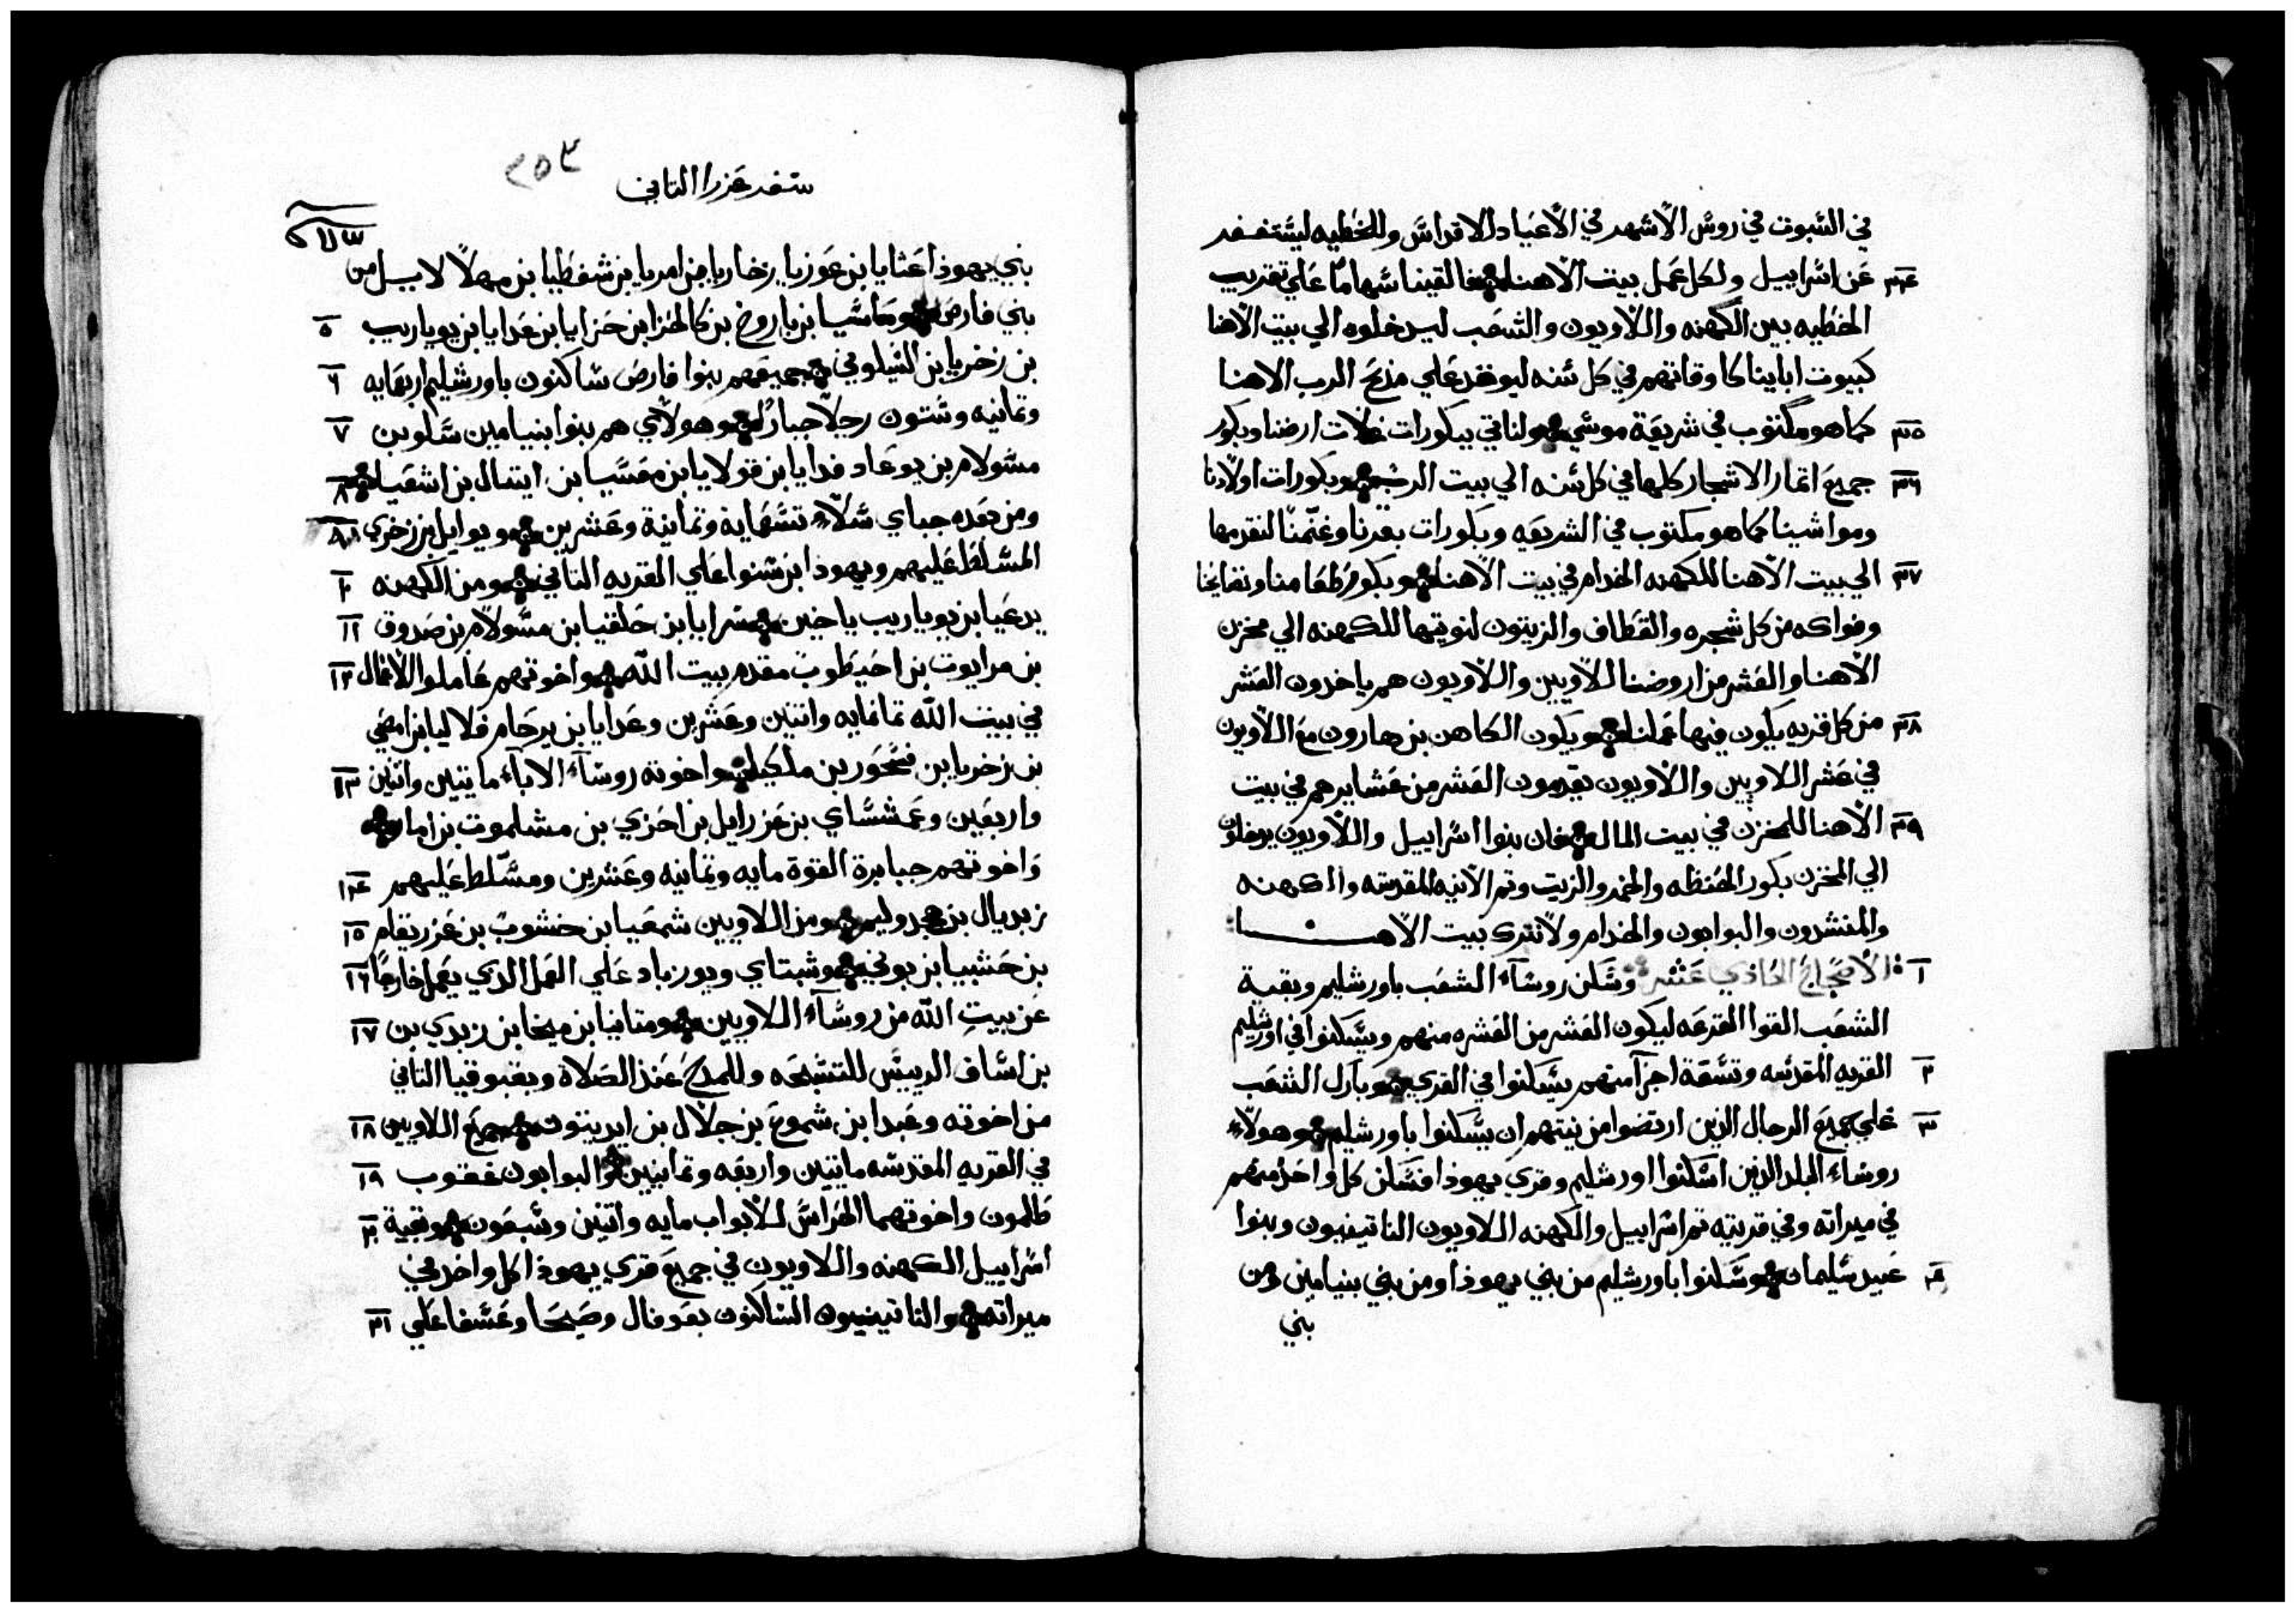 في السبوت في روس الأشهر في الأعياد الاقداس وللخطيه ليستغفر
٣٤ عن اسراييل ولكل عمل بيت الاهنا فالقينا اسهاماً علي تقريب
الحطيه بين الكهنه واللاويون والشعب ليدخلوه الي بيت الاهنا
كبيوت اباينا كاوقاتهم في كل سنه ليوقد علي مذبح الرب الاهنا
٣٥ كما هو مكتوب في شريعة موسي ولناتي ببكورات غلات ارضنا وبكور
٣٦ جميع اتمار الاشجار كلها في كل سنه الي بيت الرب وبكورات اولادنا
ومواشينا كما هو مكتوب في الشريعه وبكورات بقرنا وغنمنا لنقدمها
٣٧ الي بيت الاهنا للكهنه الخدام في بيت الاهنا وبكور طعامنا ونقايحنا
وفواكه من كل شجره والقطاف والزيتون لنوتيها للكهنه الي مخزن
الاهنا والعشر من اروضنا للاويين واللاويون هم ياخدون العشر
٣٨ من كل قريه يكون فيها عملنا ويكون الكاهن بن هارون مع اللاويون
في عشر اللاويين واللاويون يقدمون العشر من عشايرهم في بيت
٣٩ الاهنا للمخزن في بيت المال فان بنوا اسراييل واللاويون يدخلون
الي المخزن بكور الحنطه والخمر والزيت وتم الانيه المقدسه والكهنه
والمنشدون والبوابون والخدام ولا نترك بيت الاهنا
١ الاصحاح الحادي عشر وسكن روساء الشعب باورشليم وبقية
الشعب القوا القرعه ليكون العشر من العشره منهم ويسكنوا في اورشليم
٢ القريه المقدسه وتسعة اجزآ منهم يسكنوا في القري وبارك الشعب
٣ علي جميع الرجال الذين ارتضوا من نيتهم ان يسكنوا باورشليم وهولاء
روساء البلد الذين اسكنوا اورشليم وقري يهوذا فسكن كل واحد منهم
في ميراته وفي قريته تم اسراييل والكهنه اللاويون الناتينيون وبنوا
٤ عبيد سليمان وسكنوا باورشليم من بني يهوذا ومن بني بنيامين ومن
بني
سفر عزرا التاني
٢٥٣
بني يهوذا عثايا بن عوزيا بن زخاريا بن امريا بن شفطيا بن مهلاً لاييل من
بني فارص ومعاسيا بن باروخ بن كالحزا بن حزايا بن عدايا بن يوياريب ٥
بن زخريا بن السيلوني جميعهم بنوا فارص ساكنون باورشليم اربعمايه ٦
وتمانيه وستون رجلاً جباراً وهولاي هم بنوا بنيامين سلو بن ٧
مسولام بن يوعاد فدايا بن قولايا بن معسيا بن ايتال بن اشعيا ٨
ومن بعده جباي سلاء تسعماية وتمانية وعشرين ويوايل بن زخري ٩
المسلط عليهم ويهودا بن سنوا علي القريه التاني ومن الكهنه ١٠
يدعيا بن يوياريب ياخين سرايا بن حلقيا بن مسولام بن صدوق ١١
بن مرايوت بن احيطوب مقدم بيت الله واخوتهم عاملوا الاعمال ١٢
في بيت الله تمانمايه واتنين وعشرين وعدايا بن يرحام فلاليا بن امصي
بن زخريا بن فسحور بن ملكيا واخوته روساء الاباء مايتين واتنين ١٣
واربعين وعمشساي بن عزرايل بن احزي بن مشلموت بن امار
واخوتهم جبابرة القوة مايه وتمانيه وعشرين ومسلط عليهم ١٤
زبديال بن جدوليم ومن اللاويين شمعيا بن حشوب بن عزريقام ١٥
بن حشبيا بن بوني وشبتاي ويوزباد علي العمل الذي يعمل خارجاً ١٦
عن بيت الله من روساء اللاويين ومتانيا بن ميخا بن زبدي بن ١٧
بن اساف الرييس للتسبحه وللمدح عند الصلاة وبقبوقيا التاني
من اخوته وعبدا بن شموع بن جلال بن ايديتون جميع اللاويين ١٨
في القريه المقدسه مايتين واربعه وتمانيين والبوابون عقوب ١٩
طلمون واخوتهما الحراس للابواب مايه واتنين وسبعون وبقية ٢٠
اسراييل الكهنه واللاويون في جميع قري يهوذا كل واحد في
ميراته والناتينيون الساكنون بعوفال وصيحا وعشفا علي ٢١